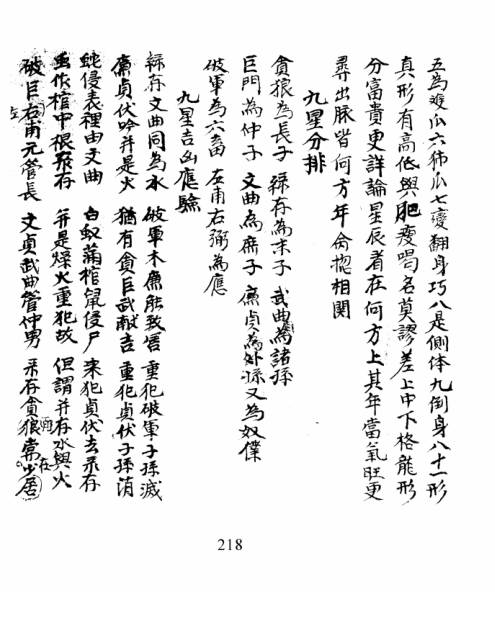 五為雙瓜六狮瓜七變翻身巧八是側体九倒身八十一形
真形有高低與肥瘦喝名莫謬差上中下格能形
分富貴更詳論星辰看在何方上其年當氣旺更
尋出脉皆何方年命揔相関
九星分排
貪狼為長子 祿存為末子 武曲為諸孫
巨門為仲子 文曲為庶子 廉貞為外孫又為奴僕
破軍為六畜 左甫右弼為應
九星吉凶應驗
祿存文曲同為水 破軍木廉能致 重犯破軍子孫滅
廉貞伏吟并是火 猶有貪巨武献吉 重犯貞伏子孫消
蛇侵表裡由文曲 白蚁滿棺鼠侵尸 来犯貞伏去禾存
虫作棺中根禾存 并是煙火重犯故 但謂并存水與火
破巨右甫元管長 文貞武曲管仲男 禾存貪狼常少居
左
在
218